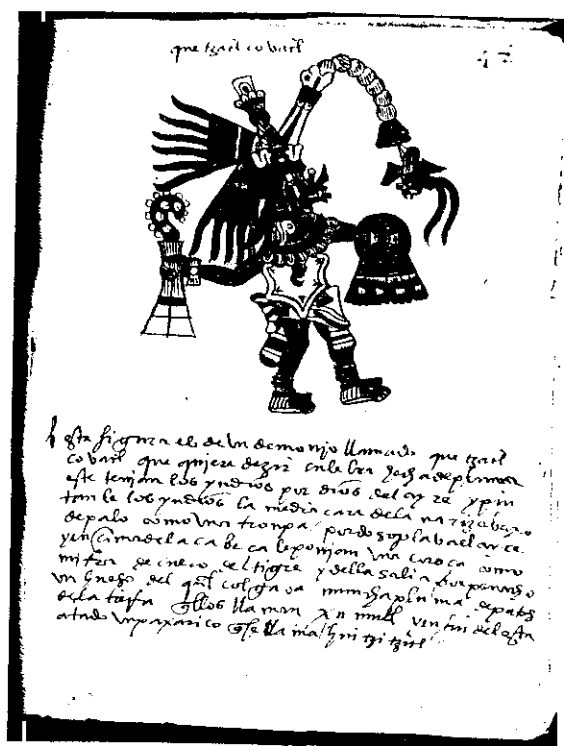 que tzalcovatl
47
esta figura es de un demonio llamado que tzal
covatl que quiere dezir culebra hecha de pluma
este tenian los yndios por dios del ayre y pin
tan le los yndios la media cara de la nariz abaxo
de palo como una trompa / por do soplava el ayre
y encima de la cabeça le ponian una coroça como
mitra de cuero de tigre y della salia por penacho
un hueso del qual colgava mucha pluma de patos
de la tierra quellos llaman xumutl y en fin del esta
atado un paxarico que se llama huitzitzil